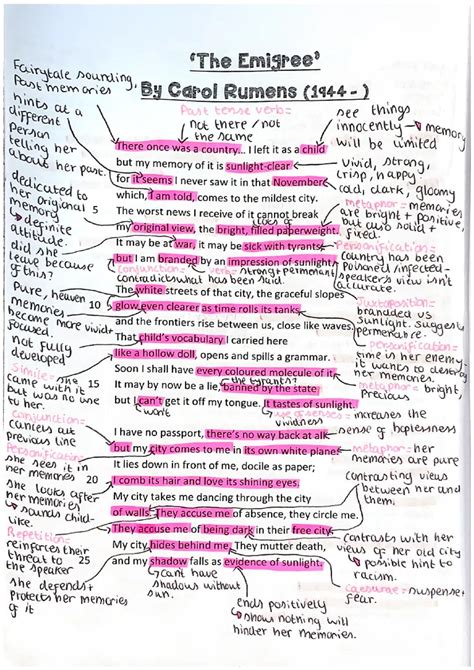 'The Emigree'
By Carol Rumens (1944- )
Fairytale sounding,
Past memories
hints at a
different
person
telling her
about her past.
dedicated to
her original 5
memory
↳ definite
attitude.
did she
leave because
of this?
Pure, heaven 10
memories
become more vivid+
focused
not fully
developed
Simile= she 15
came with it
but was no use
to her.
Conjunction=
cancels out
previous line
Personification=
she sees it in
her memories 20
she looks after
her memories
↳ sounds child-
like.
Repetition=
reinforces their
threat to 25
the speaker
she defends+
protects her memories
of it
Past tense verb=
not there / not
the same
There once was a country... I left it as a child
but my memory of it is sunlight-clear
for it seems I never saw it in that November
which, I am told, comes to the mildest city.
The worst news I receive of it cannot break
my original view, the bright, filled paperweight.
It may be at war, it may be sick with tyrants,
but I am branded by an impression of sunlight.
Conjunction= verb= strong+permanent
contradicts what has been said.
The white streets of that city, the graceful slopes
glow even clearer as time rolls its tanks
and the frontiers rise between us, close like waves.
That child's vocabulary I carried here
like a hollow doll, opens and spills a grammar.
Soon I shall have every coloured molecule of it.
the tyrants?
It may by now be a lie, banned by the state
but I can't get it off my tongue. It tastes of sunlight.
won't
vividness
I have no passport, there's no way back at all
but my city comes to me in its own white plane.
It lies down in front of me, docile as paper;
I comb its hair and love its shining eyes.
My city takes me dancing through the city
of walls. They accuse me of absence, they circle me.
They accuse me of being dark in their free city.
My city hides behind me. They mutter death,
and my shadow falls as evidence of sunlight.
cant have
shadows without
sun.
ends positively
↳ show nothing will
hinder her memories.
see things
innocently → memory
will be limited
vivid, strong,
crisp, happy
cold, dark, gloomy
metaphor= memories
are bright + positive,
but also solid +
fixed.
Personification=
country has been
poisoned/infected-
speakers view isn't
accurate.
Juxtaposition=
branded vs
sunlight. suggests
permenance
personification=
time is her enemy,
it wants to destroy
her memories.
metaphor= bright,
Precious
use of senses= increases the
sense of hoplessness
metaphor= her
memories are pure
contrasting views
between her and
them.
Contrasts with her
views of her old city
↳ possible hint to
racism.
caesurae= suspense+
fear.